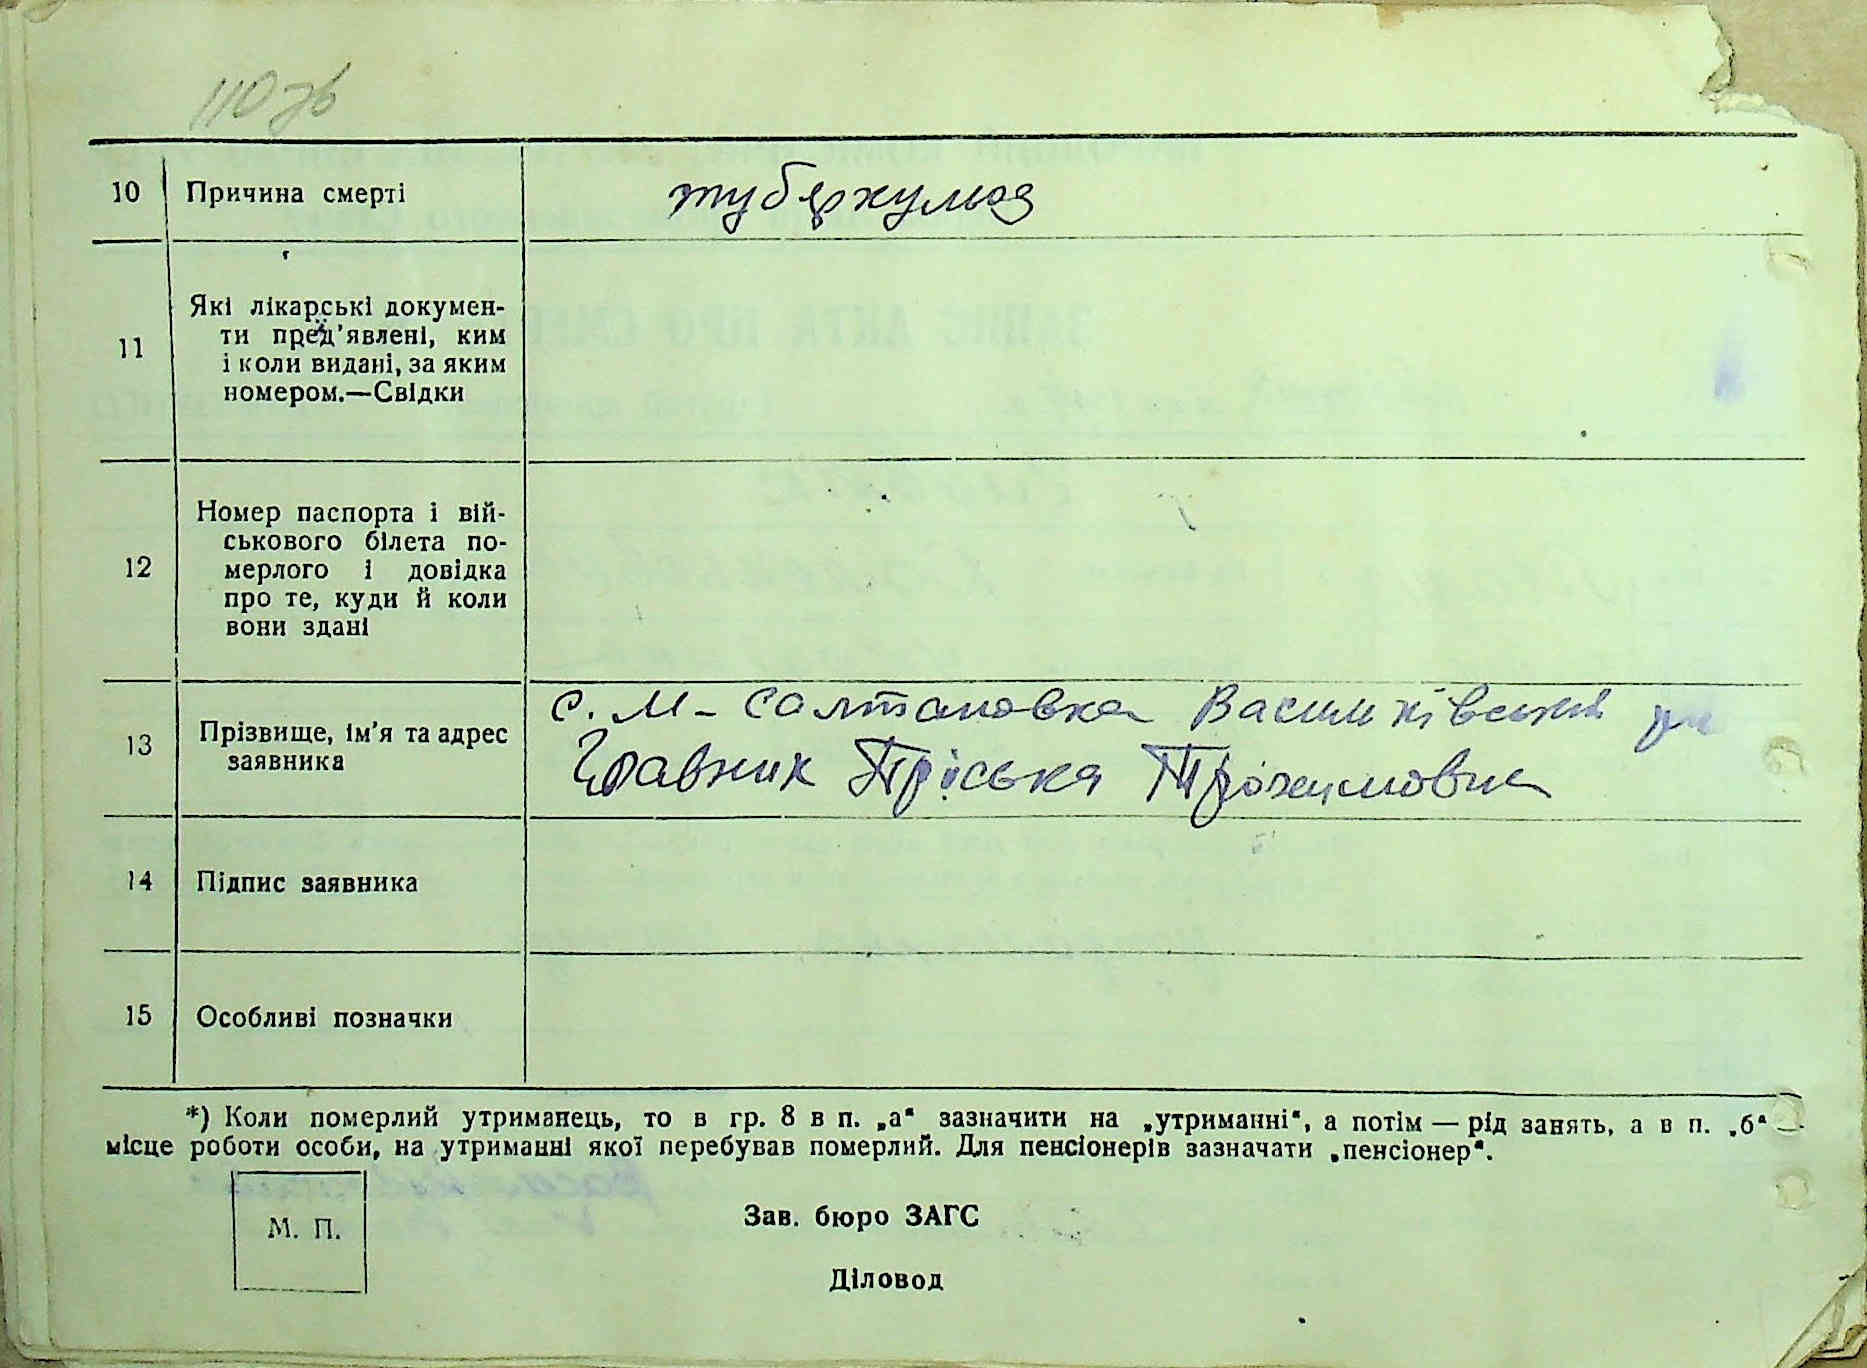 110 зв
10 Причина смерті туберкульоз
11 Які лікарські докумен-
ти пред'явлені, ким
і коли видані, за яким
номером.—Свідки
12 Номер паспорта і вій-
ськового білета по-
мерлого і довідка
про те, куди й коли
вони здані
13 Прізвище, ім'я та адрес
заявника
с. М-Салтановка Васильківський
Правник Пріська Трохимовна
14 Підпис заявника
15 Особливі позначки
*) Коли померлий утриманець, то в гр. 8 в п. „а“ зазначити на „утриманні“, а потім — рід занять, а в п. „б“ —
місце роботи особи, на утриманні якої перебував померлий. Для пенсіонерів зазначати „пенсіонер“.
М. П.
Зав. бюро ЗАГС
Діловод